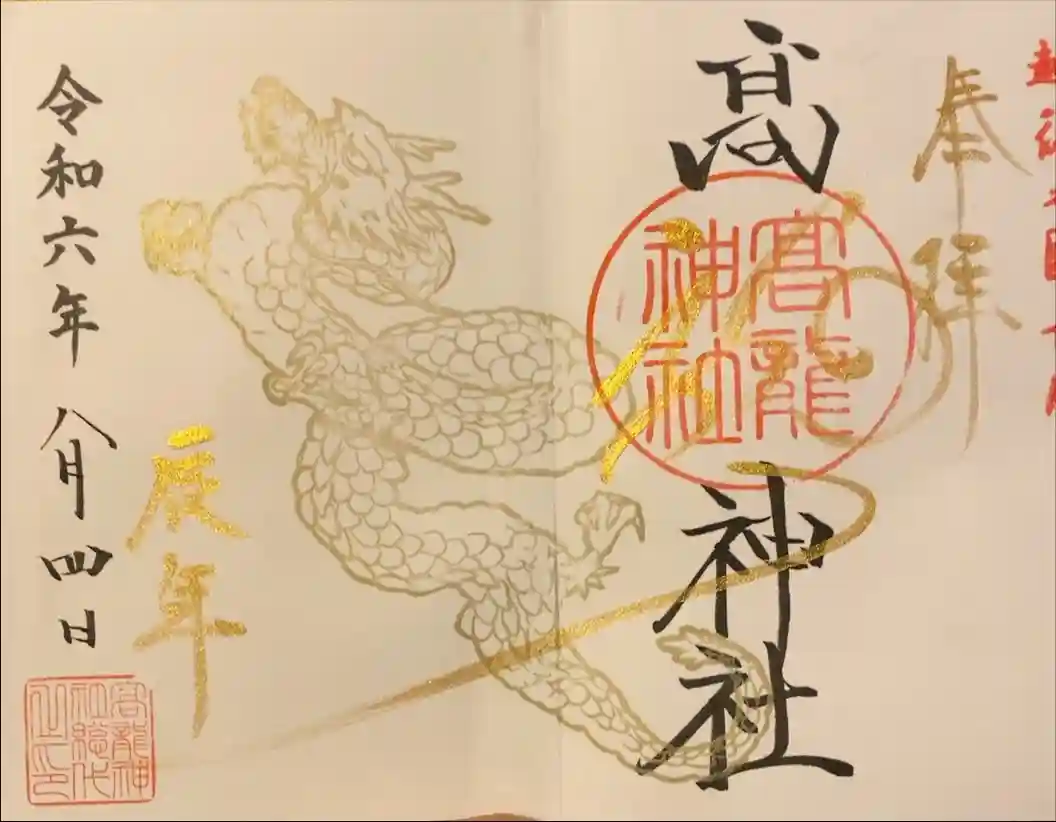 奉拝
高龍神社
高龍
神社
辰年
令和六年 八月四日
高龍神
社総代
之印